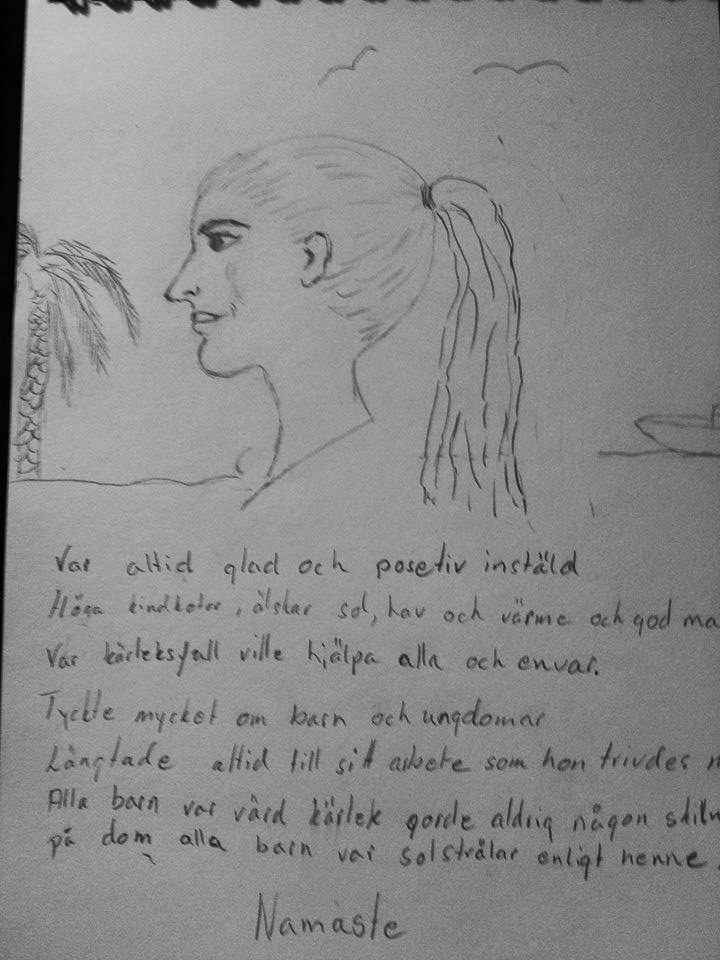 Var altid glad och posetiv instäld
Höga kindkotor, älskar sol, hav och värme och god ma
Var kärleksfull ville hjälpa alla och envar.
Tyckte mycket om barn och ungdomar
Längtade altid till sitt arbete som hon trivdes
Alla barn var värd kärlek gorde aldrig någon skiln
på dom alla barn var solstrålar enligt henne.
Namaste